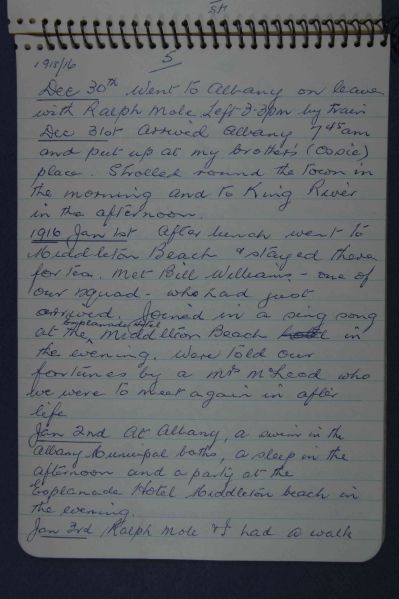 1915/16
5
Dec 30th Went to Albany on leave
with Ralph Mole. Left 3-3pm by train
Dec 31st arrived Albany 7 45am
and put up at my brother's (Ossie)
place. Strolled round the town in
the morning and to King River
in the afternoon.
1916 Jan 1st After lunch went to
Middleton Beach & stayed there
for tea. Met Bill Williams - one of
our squad - who had just
arrived. Joined in a sing song
Esplanade Hotel
at the Middleton Beach in
the evening. Were told our
fortunes by a Mrs McLeod who
we were to meet again in after
life
Jan 2nd At Albany, a swim in the
Albany Municipal baths, a sleep in the
afternoon and a party at the
Esplanade Hotel Middleton beach in
the evening.
Jan 3rd, Ralph Mole & I had a walk